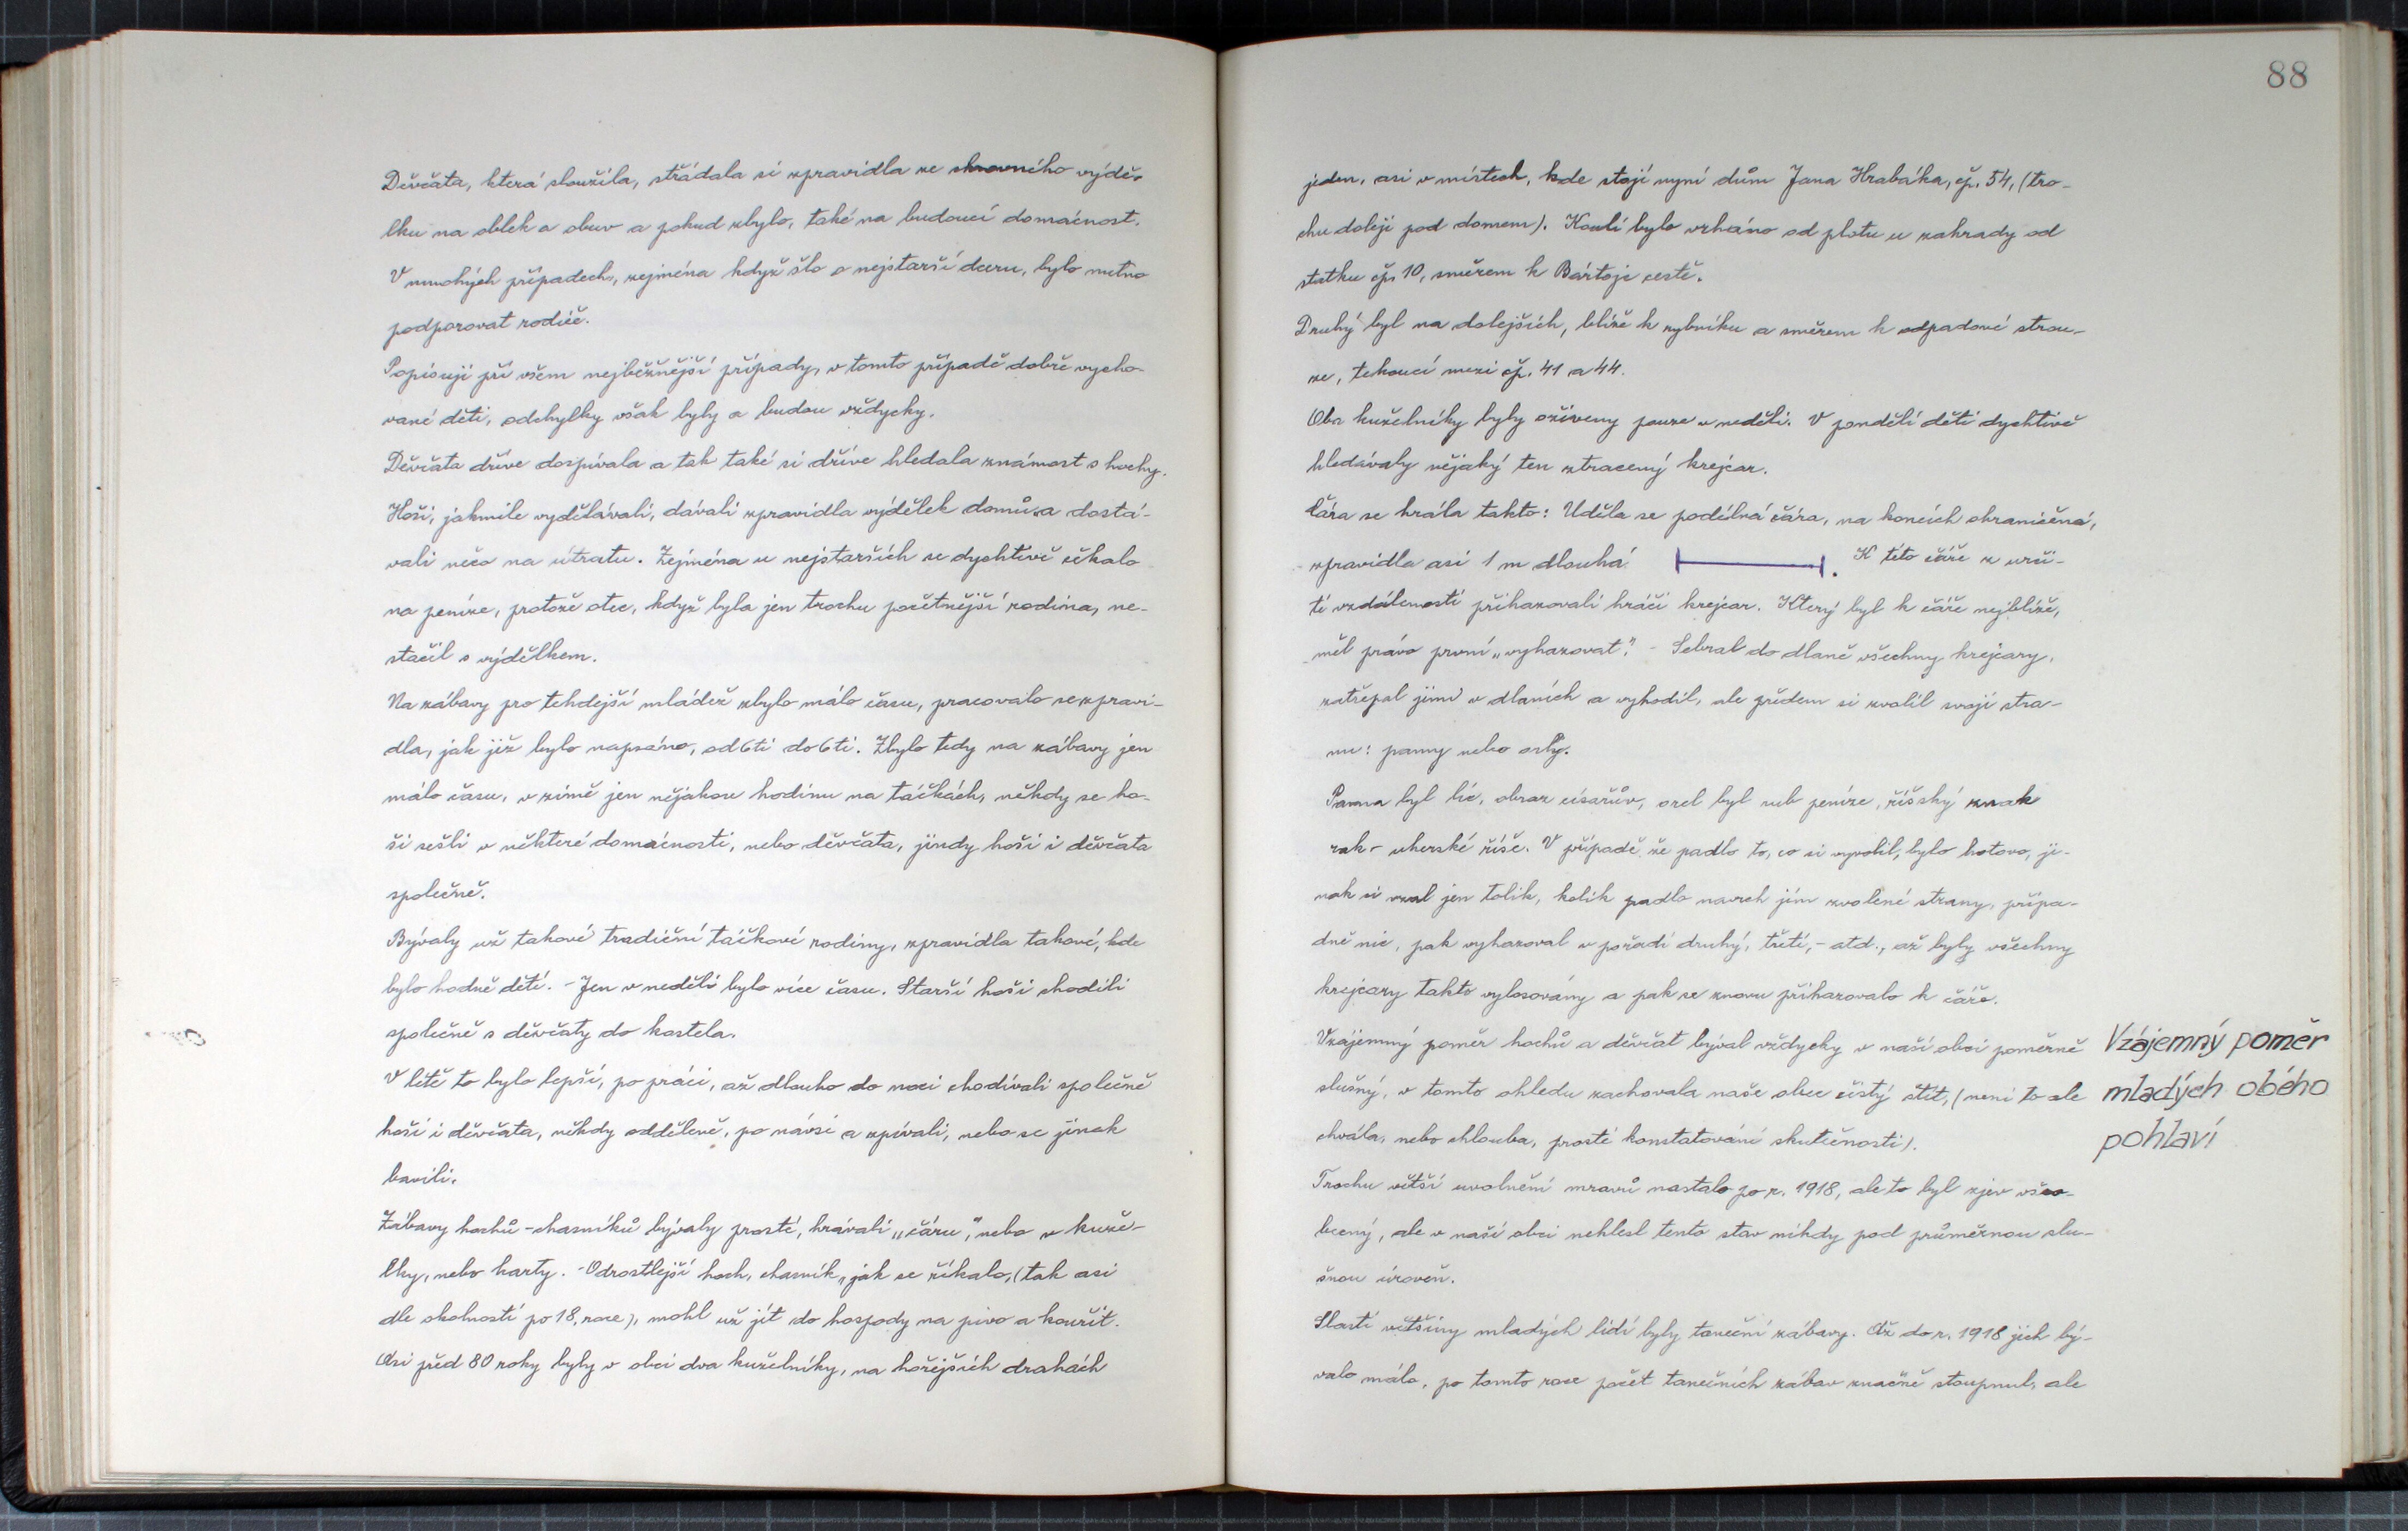 Děvčata, která sloužila, střádala si zpravidla ze skrovného výděl-
lku na oblek a obuv a pokud zbylo, také na budoucí domácnost.
V mnohých případech, zejména když šlo o nejstarší dceru, bylo nutno
podporovat rodiče.
Popisuji při všem nejběžnější případy, v tomto případě dobře vycho-
vané děti, odchylky však byly a budou vždycky.
Děvčata dříve dospívala a tak také si dříve hledala známost s hochy.
Hoši, jakmile vydělávali, dávali zpravidla výdělek domů, a dostá-
vali něco na útratu. Zejména u nejstarších se dychtivě čekalo
na peníze, protože otec, když byla jen trochu početnější rodina, ne-
stačil s výdělkem.
Na zábavy pro tehdejší mládež zbylo málo času, pracovalo se zpravi-
dla, jak již bylo napsáno, od 6ti do 6ti. Zbylo tedy na zábavy jen
málo času, v zimě jen nějakou hodinu na táčkách, někdy se ho-
ši sešli v některé domácnosti, nebo děvčata, jindy hoši i děvčata
společně.
Bývaly už takové tradiční táčkové rodiny, zpravidla takové, kde
bylo hodně dětí. - Jen v neděli bylo více času. Starší hoši chodili
společně s děvčaty do kostela.
V létě to bylo lepší, po práci, až dlouho do noci chodívali společně
hoši i děvčata, někdy odděleně, po návsi a zpívali, nebo se jinak
bavili.
Zábavy hochů - chasníků bývaly prosté, hrávali „čáru", nebo v kuže-
lky, nebo karty. - Odrostlejší hoch, chasník, jak se říkalo, (tak asi
dle okolností po 18. roce), mohl už jít do hospody na pivo a kouřit.
Asi před 80 roky byly v obci dva kuželníky, na hořejších drahách
88
jeden, asi v místech, kde stojí nyní dům Jana Hrabáka, čp. 54, (tro-
chu doleji pod domem). Koulí bylo vrháno od plotu u zahrady od
statku čp. 10, směrem k Bártoje cestě.
Druhý byl na dolejších, blíže k rybníku a směrem k odpadové strou-
ze, tekoucí mezi čp. 41 a 44.
Oba kuželníky byly oživeny pouze v neděli. V pondělí děti dychtivě
hledávaly nějaký ten ztracený krejcar.
Čára se hrála takto: Uděla se podélná čára, na koncích ohraničená,
zpravidla asi 1 m dlouhá. K této čáře z urči-
té vzdálenosti přihazovali hráči krejcar. Který byl k čáře nejblíže,
měl právo první „vyhazovat". - Sebral do dlaně všechny krejcary,
zatřepal jimi v dlaních a vyhodil, ale předem si zvolil svoji stra-
nu: panny nebo orly.
Panna byl líc, obraz císařův, orel byl rub peníze, říšský znak
rak- uherské říše. V případě, že padlo to, co si vyvolil, bylo hotovo, ji-
nak si vzal jen tolik, kolik padlo navrch jím zvolené strany, přípa-
dně nic, pak vyhazoval v pořadí druhý, třetí, - atd., až byly všechny
krejcary takto vylosovány a pak se znovu přihazovalo k čáře.
Vzájemný poměr hochů a děvčat býval vždycky v naší obci poměrně
slušný, v tomto ohledu zachovala naše obec čistý štít, (není to ale
chvála, nebo chlouba, prosté konstatování skutečnosti).
Vzájemný poměr
mladých obého
pohlaví
Trochu větší uvolnění mravů nastalo po r. 1918, ale to byl zjev všeo-
becný, ale v naší obci neklesl tento stav nikdy pod průměrnou slu-
šnou úroveň.
Slastí většiny mladých lidí byly taneční zábavy. Až do r. 1918 jich bý-
valo málo, po tomto roce počet tanečních zábav značně stoupnul, ale